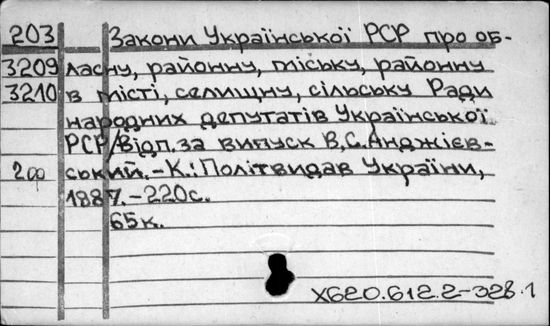 203 Закони Української РСР про об-
3209 ласну, районну, міську, районну
3210 в місті, селищну, сільську Ради
народних депутатів Української
РСР/Відп.за випуск В,С.Анджієв-
2ф ський.-К.:Політвидав України,
1887.-220с.
65к.
Х620.612.2-328.1